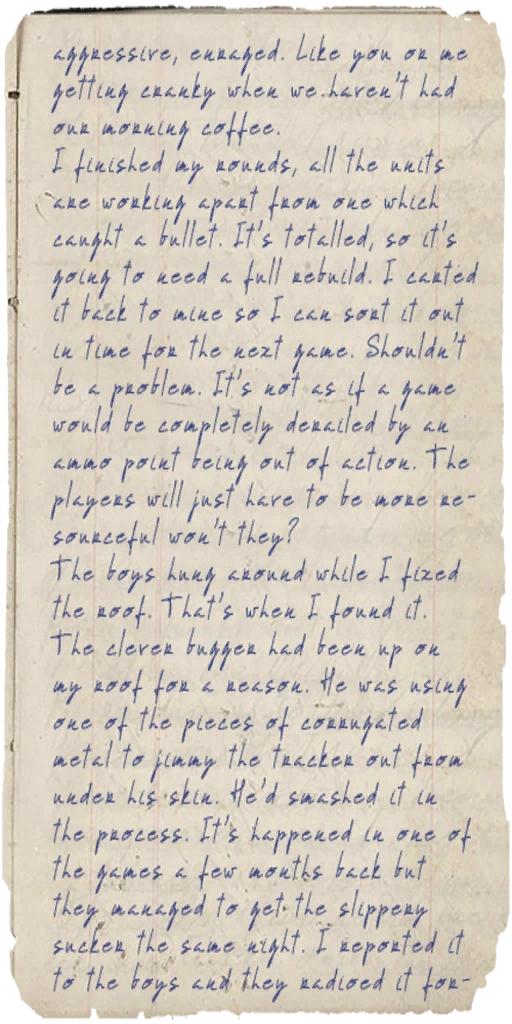 aggressive, enraged. Like you or me
getting cranky when we haven't had
our morning coffee.
I finished my rounds, all the units
are working apart from one which
caught a bullet. It's totalled, so it's
going to need a full rebuild. I carted
it back to mine so I can sort it out
in time for the next game. Shouldn't
be a problem. It's not as if a game
would be completely derailed by an
ammo point being out of action. The
players will just have to be more re-
sourceful won't they?
The boys hung around while I fixed
the roof. That's when I found it.
The clever bugger had been up on
my roof for a reason. He was using
one of the pieces of corrugated
metal to jimmy the tracker out from
under his skin. He'd smashed it in
the process. It's happened in one of
the games a few months back but
they managed to get the slippery
sucker the same night. I reported it
to the boys and they radioed it for-